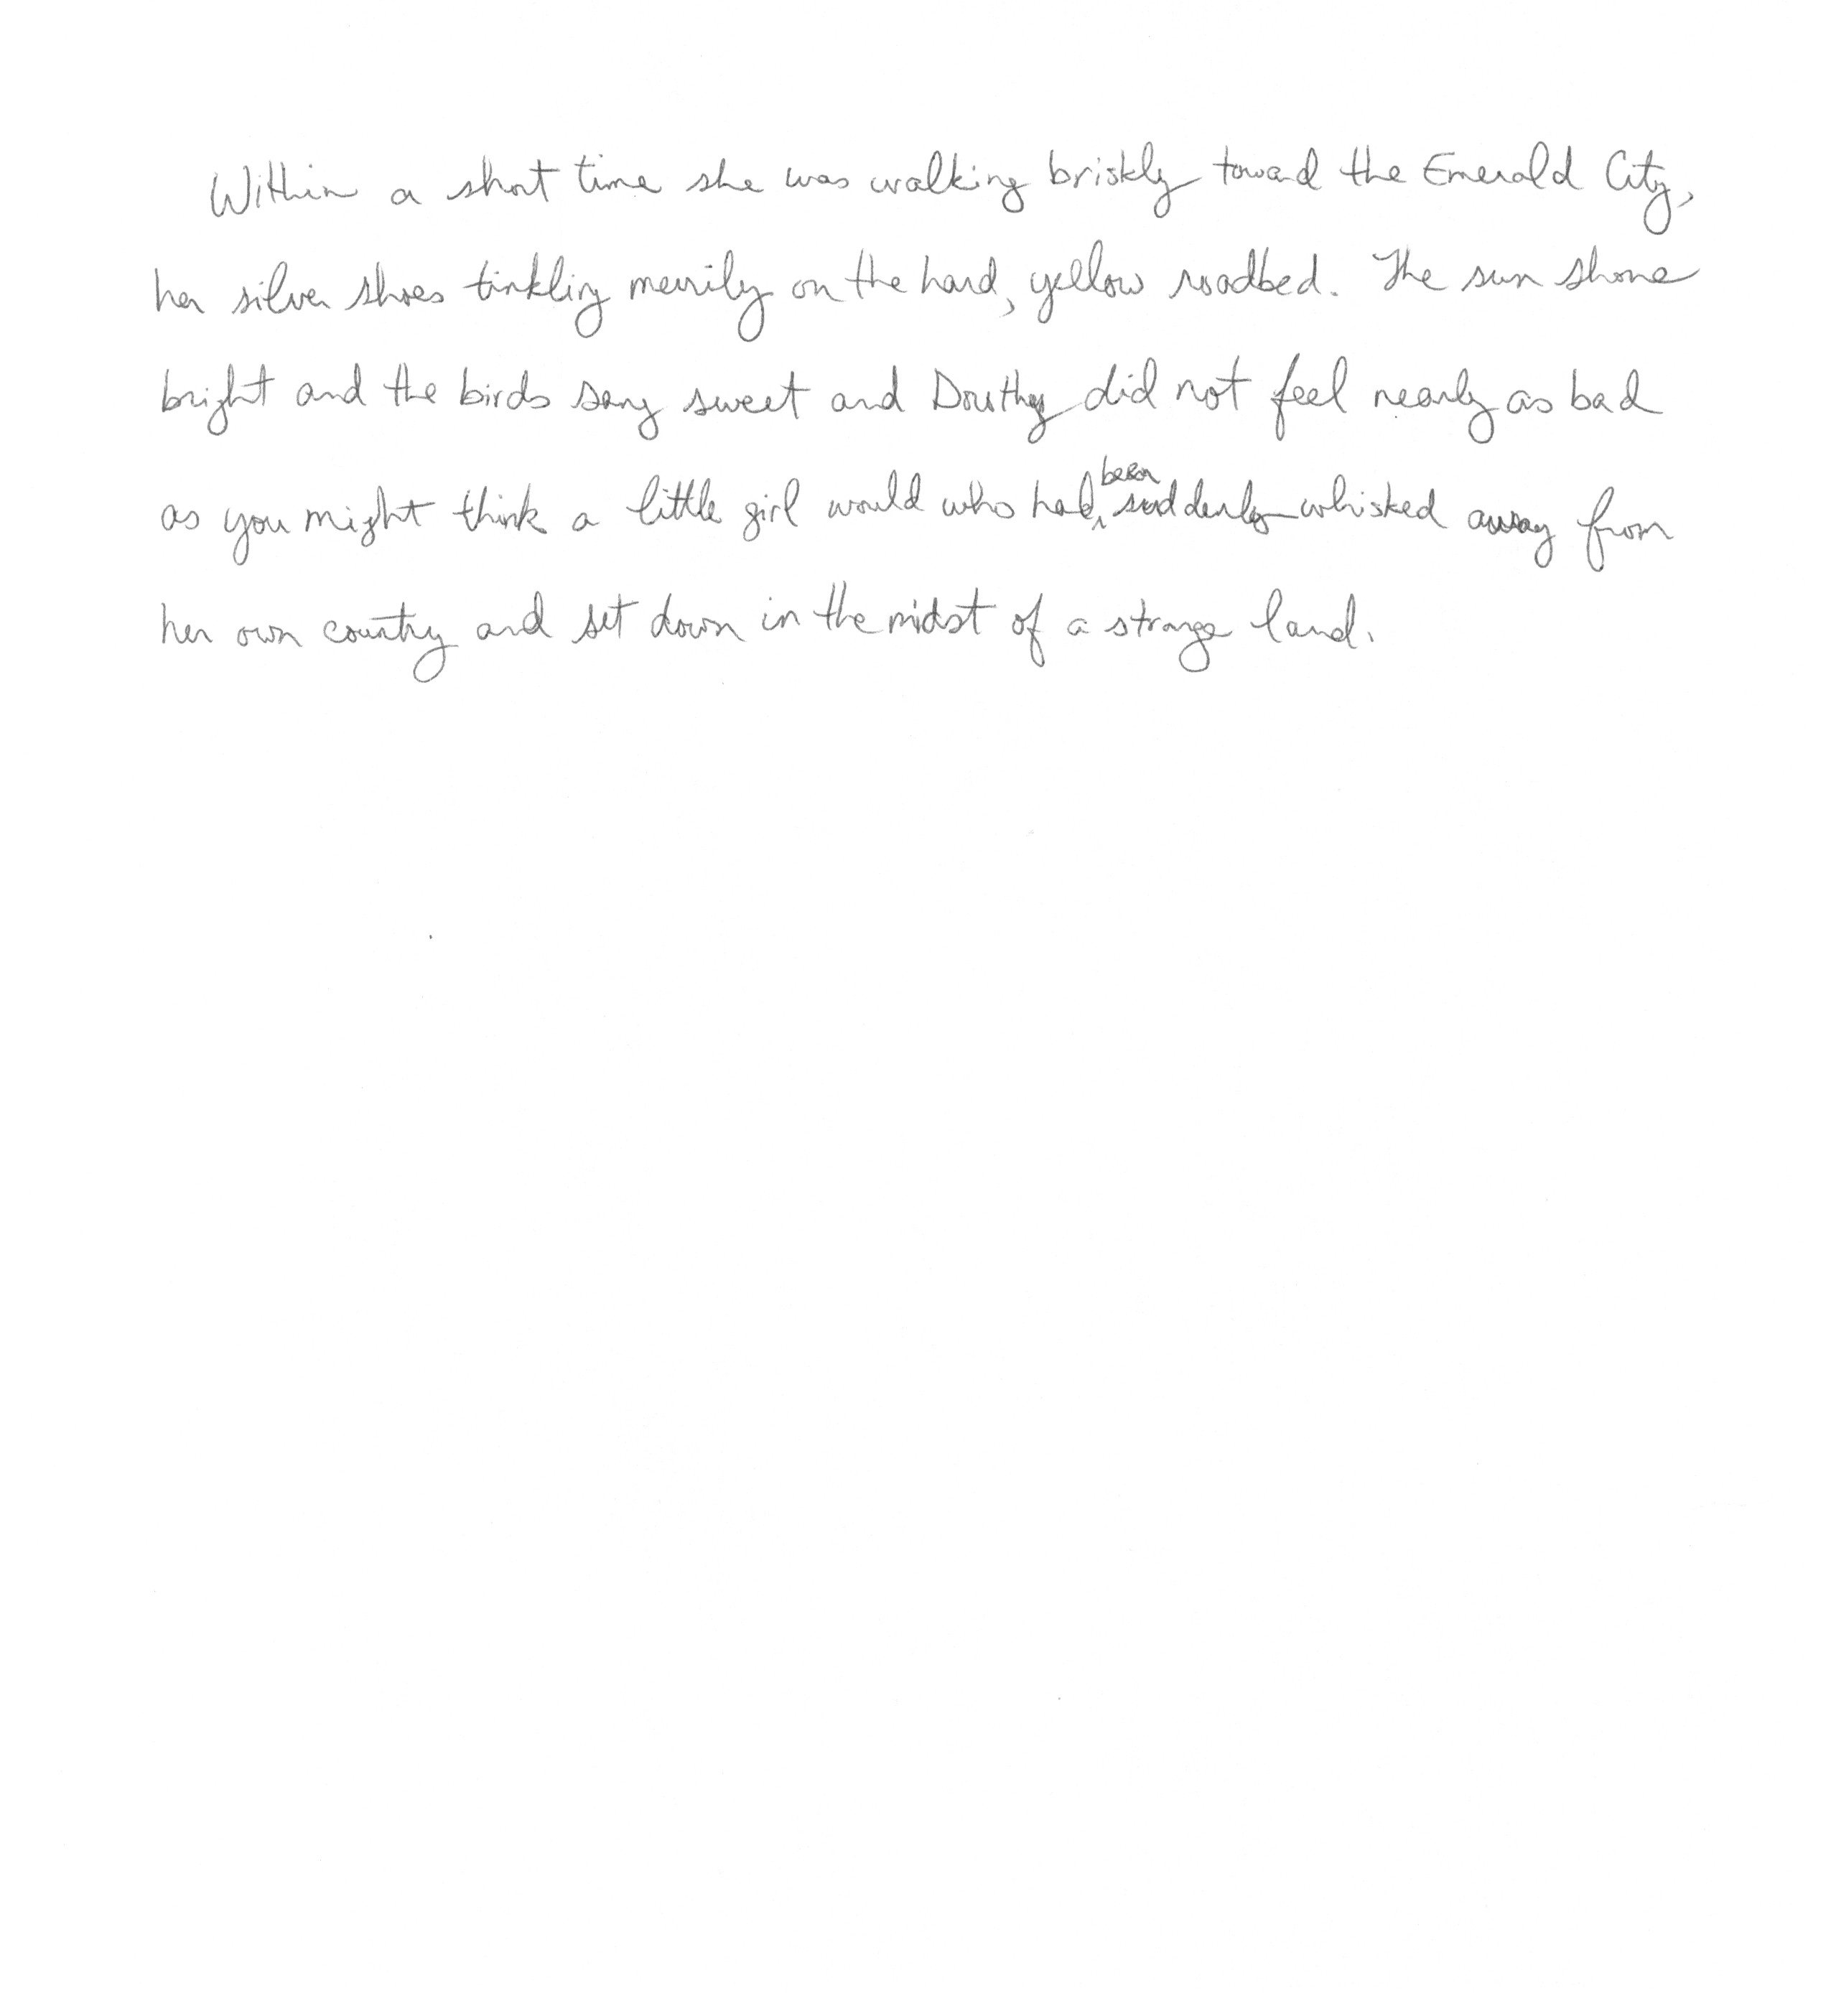 Within a short time she was walking briskly toward the Emerald City,
her silver shoes tinkling merrily on the hard, yellow roadbed. The sun shone
bright and the birds sang sweet and Dorothy did not feel nearly as bad
as you might think a little girl would who had been suddenly whisked away from
her own country and set down in the midst of a strange land.